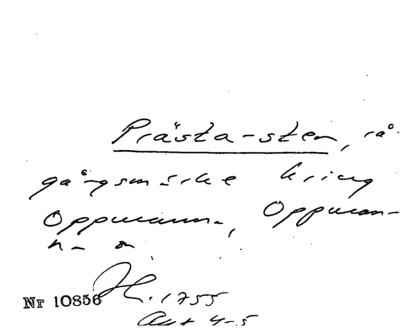 Prästa-sten, rå-
gångsmärke kring
Oppmanna, Oppman-
na
H. 1755
Nr 10856
Akt 4-5